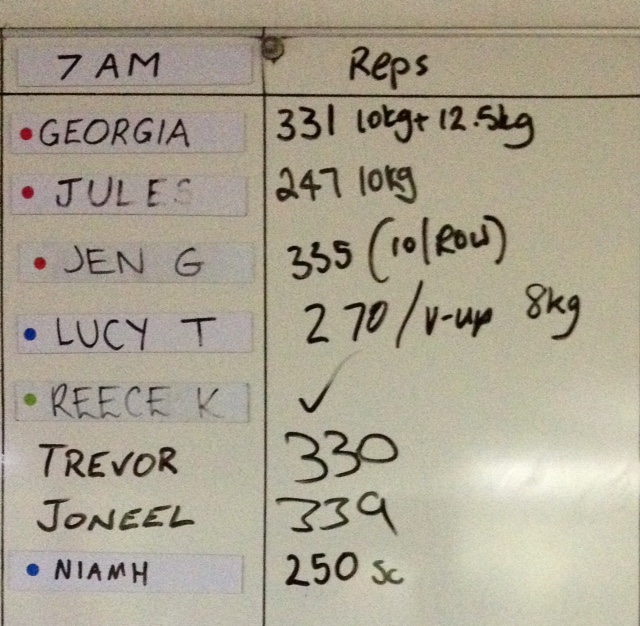 7 AM Reps
GEORGIA 331 10kg+ 12.5kg
JULES 247 10kg
JEN G 335 (10/ROW)
LUCY T 270/V-up 8kg
REECE K ✓
TREVOR 330
JONEEL 339
NIAMH 250 Sc